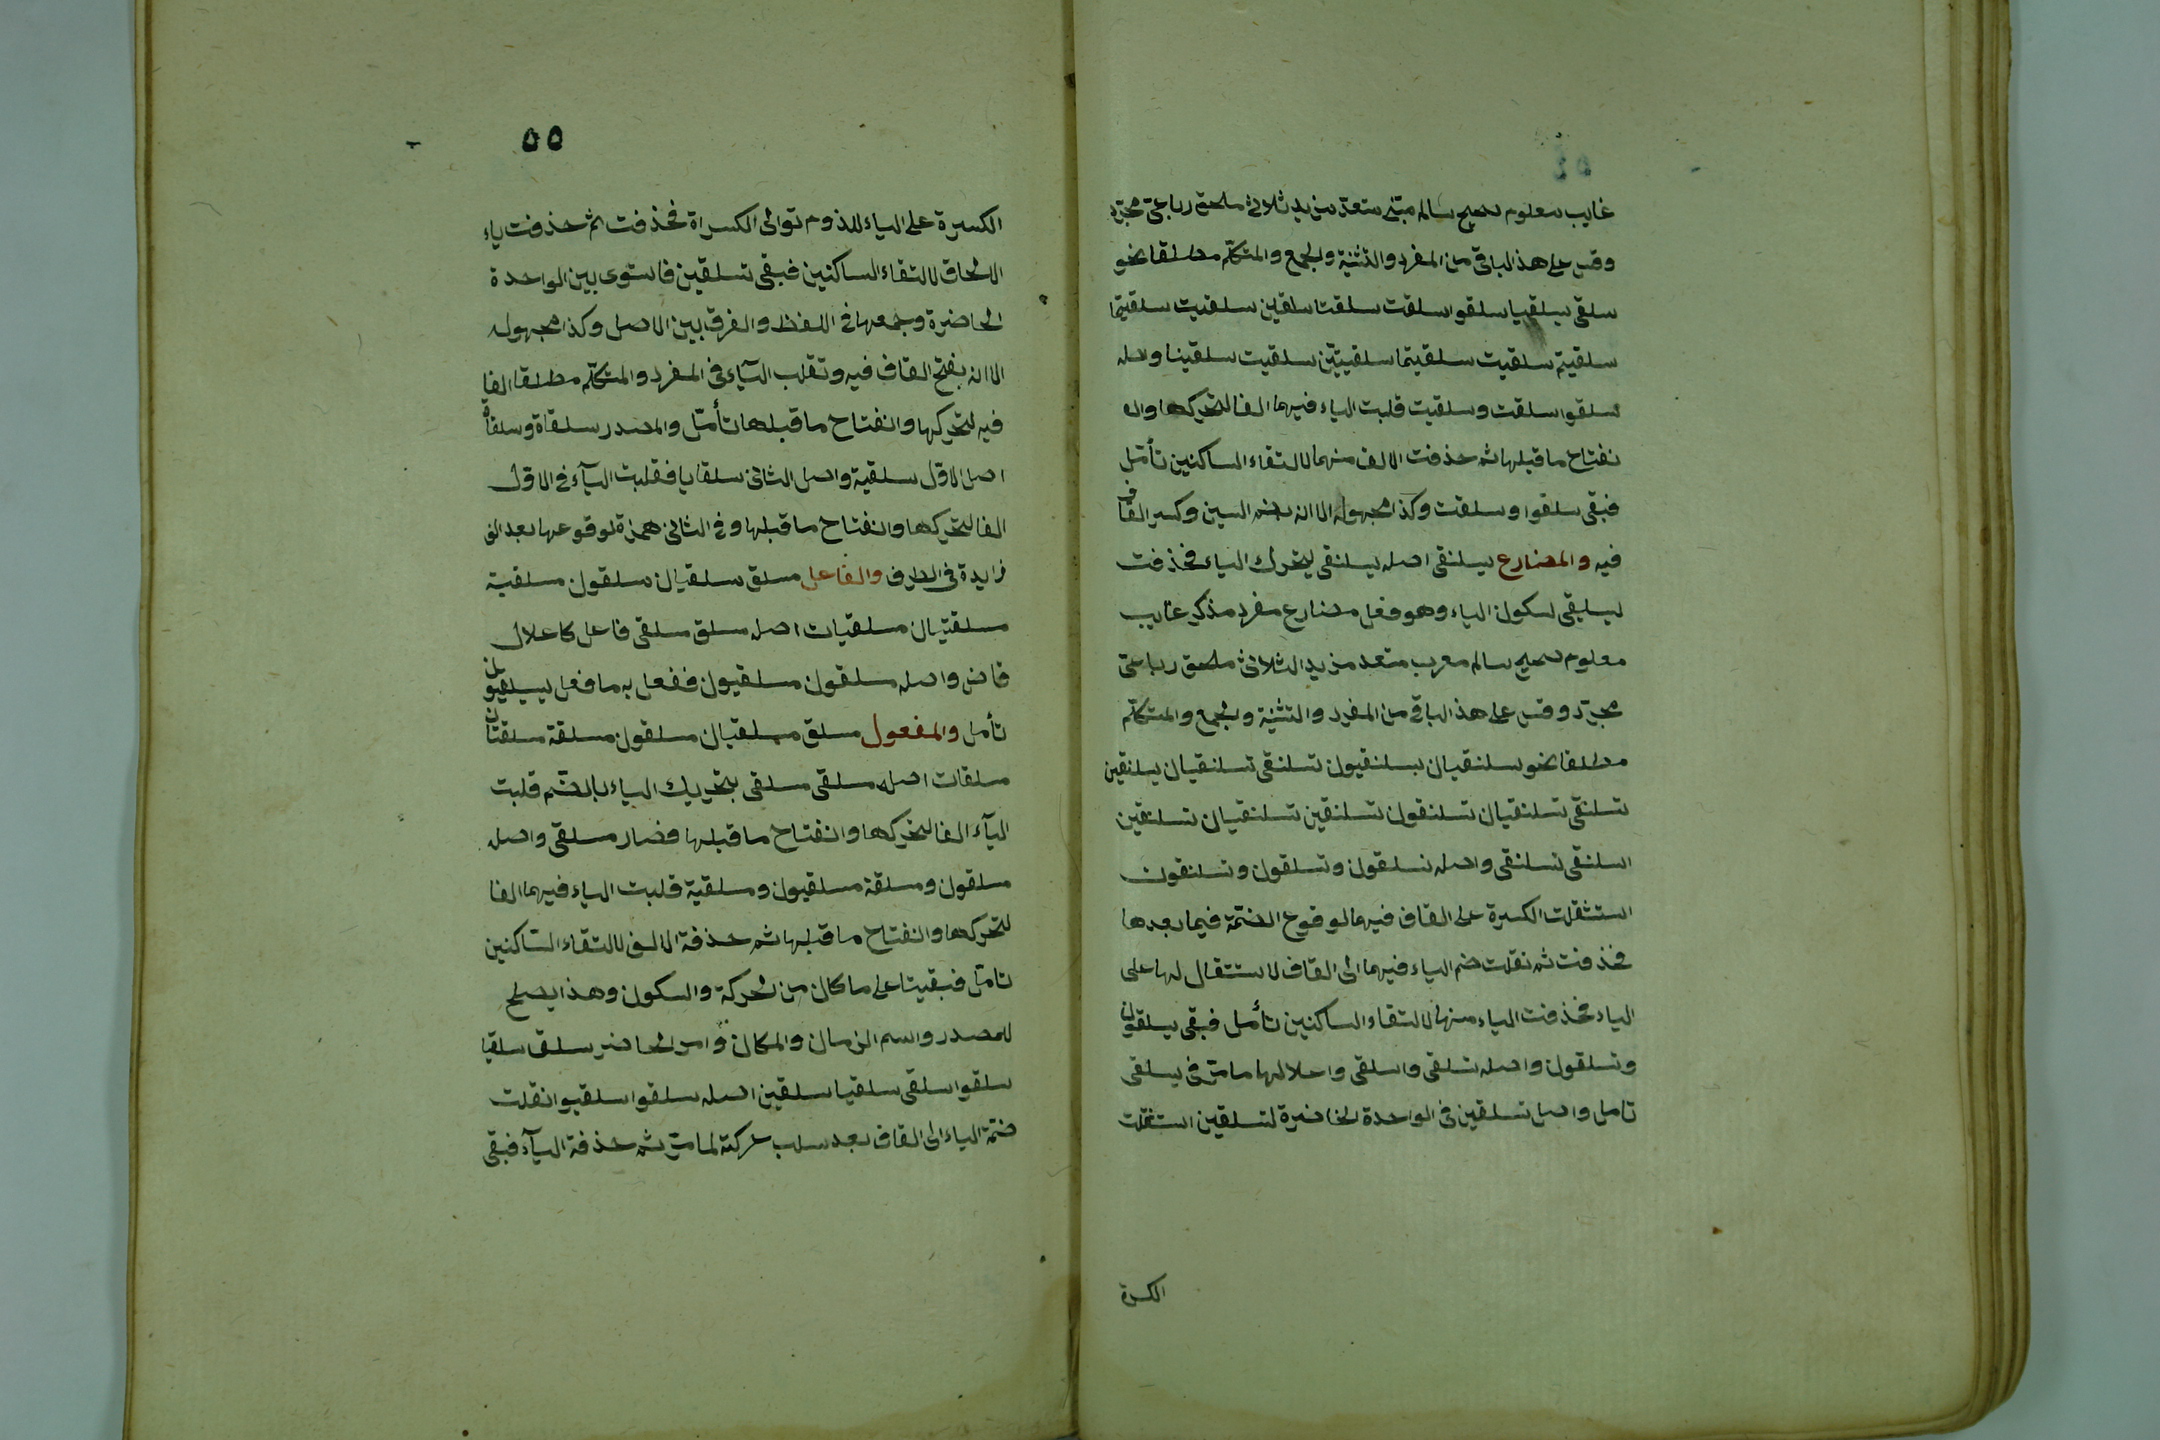 ٥٤
غايب معلوم صحيح سالم مبني متعد مزيد ثلاثى ملحق رباعى مجرد
وقس على هذا الباقى من المفرد والتثنية والجمع والمتكلم مطلقا نحو
سلقى سلقيا سلقوا سلقت سلقتا سلقين سلقيت سلقيتما
سلقيتم سلقيت سلقيتما سلقيتن سلقيت سلقينا واصله
سلقوا سلقت وسلقيت قلبت الياء فيهما الفا لتحركها وا
نفتاح ما قبلها ثم حذفت الالف منهما لالتقاء الساكنين تأمّل
فبقى سلقوا وسلقت وكذا مجهوله الا انه بضم السين وكسر القاف
فيه والمضارع يسلنقى اصله يسلنقى لتحرك الياء فحذفت
ليسلقى لسكون الياء وهو فعل مضارع مفرد مذكر غايب
معلوم صحيح سالم معرب متعد مزيد الثلاثى ملحق رباعى
مجرّد وقس على هذا الباقى من المفرد والتثنية والجمع والمتكلم
مطلقا نحو سلنقيان يسلنقيون تسلنقى تسلنقيان يسلنقين
تسلنقى تسلنقيان تسلنقون تسلنقين تسلنقيان تسلنقين
اسلنقى نسلنقى واصله نسلقون وتسلقون وتسلنقون
استثقلت الكسرة على القاف فيهما لوقوع الضمّة فيما بعدها
فحذفت ثم نقلت ضم الياء فيهما الى القاف لاستثقال لها على
الياء فحذفت الياء منها لالتقاء الساكنين تأمل فبقى يسلقون
وتسلقون واصله تسلقى واسلقى واعلالها ما مرّ فى يسلقى
تامل واصل تسلقين فى الواحدة الحاضرة لتسلقين استثقلت
الكسرة
٥٥
الكسرة على الياء للذوم توالى الكسراة فحذفت ثم حذفت ياء
الالحاق لالتقاء الساكنين فبقى تسلقين فاستوى بين الواحدة
الحاضرة وجمعها فى اللفظ والفرق بين الاصل وكذا مجهوله
الا انه بفتح القاف فيه وتقلب اليآء فى المفرد والمتكلم مطلقا الفا
فيه لتحركها وانفتاح ما قبلها تأمّل والمصدر سلقاة وسلقاة
اصل الاوّل سلقية واصل الثانى سلقايا فقلبت اليآء فى الاوّل
الفا لتحركها وانفتاح ما قبلها وفى الثانى همزة لوقوعها بعد الف
زايدة فى الطرف والفاعل مسلق سلقيان سلقون مسلقية
مسلقتيان مسلقيات اصله مسلق مسلقى فاعل كاعلال
قاض واصله مسلقون مسلقيون ففعل به ما فعل ليسلقيون
تأمل والمفعول مسلق مسلقيان مسلقون مسلقة مسلقتان
مسلقات اصله مسلقى مسلقى بتحريك الياء بالضّم قلبت
اليآء الفا لتحركها وانفتاح ما قبلها فصار مسلقى واصله
مسلقون ومسلقة مسلقيون ومسلقية قلبت الياء فيهما الفا
لتحركها وانفتاح ما قبلها ثم حذفة الالف لالتقاء السّاكنين
تامّل فبقيتا على ما كان من الحركة والسكون وهذا يصلح
للمصدر واسم الزمان والمكان وامر الحاضر سلق سلقيا
سلقوا سلقى سلقيا سلقين اصله سلقوا سلقيوا نقلت
ضمّة الياء الى القاف بعد سلب حركته لما مرّ ثم حذفة اليآء فبقى